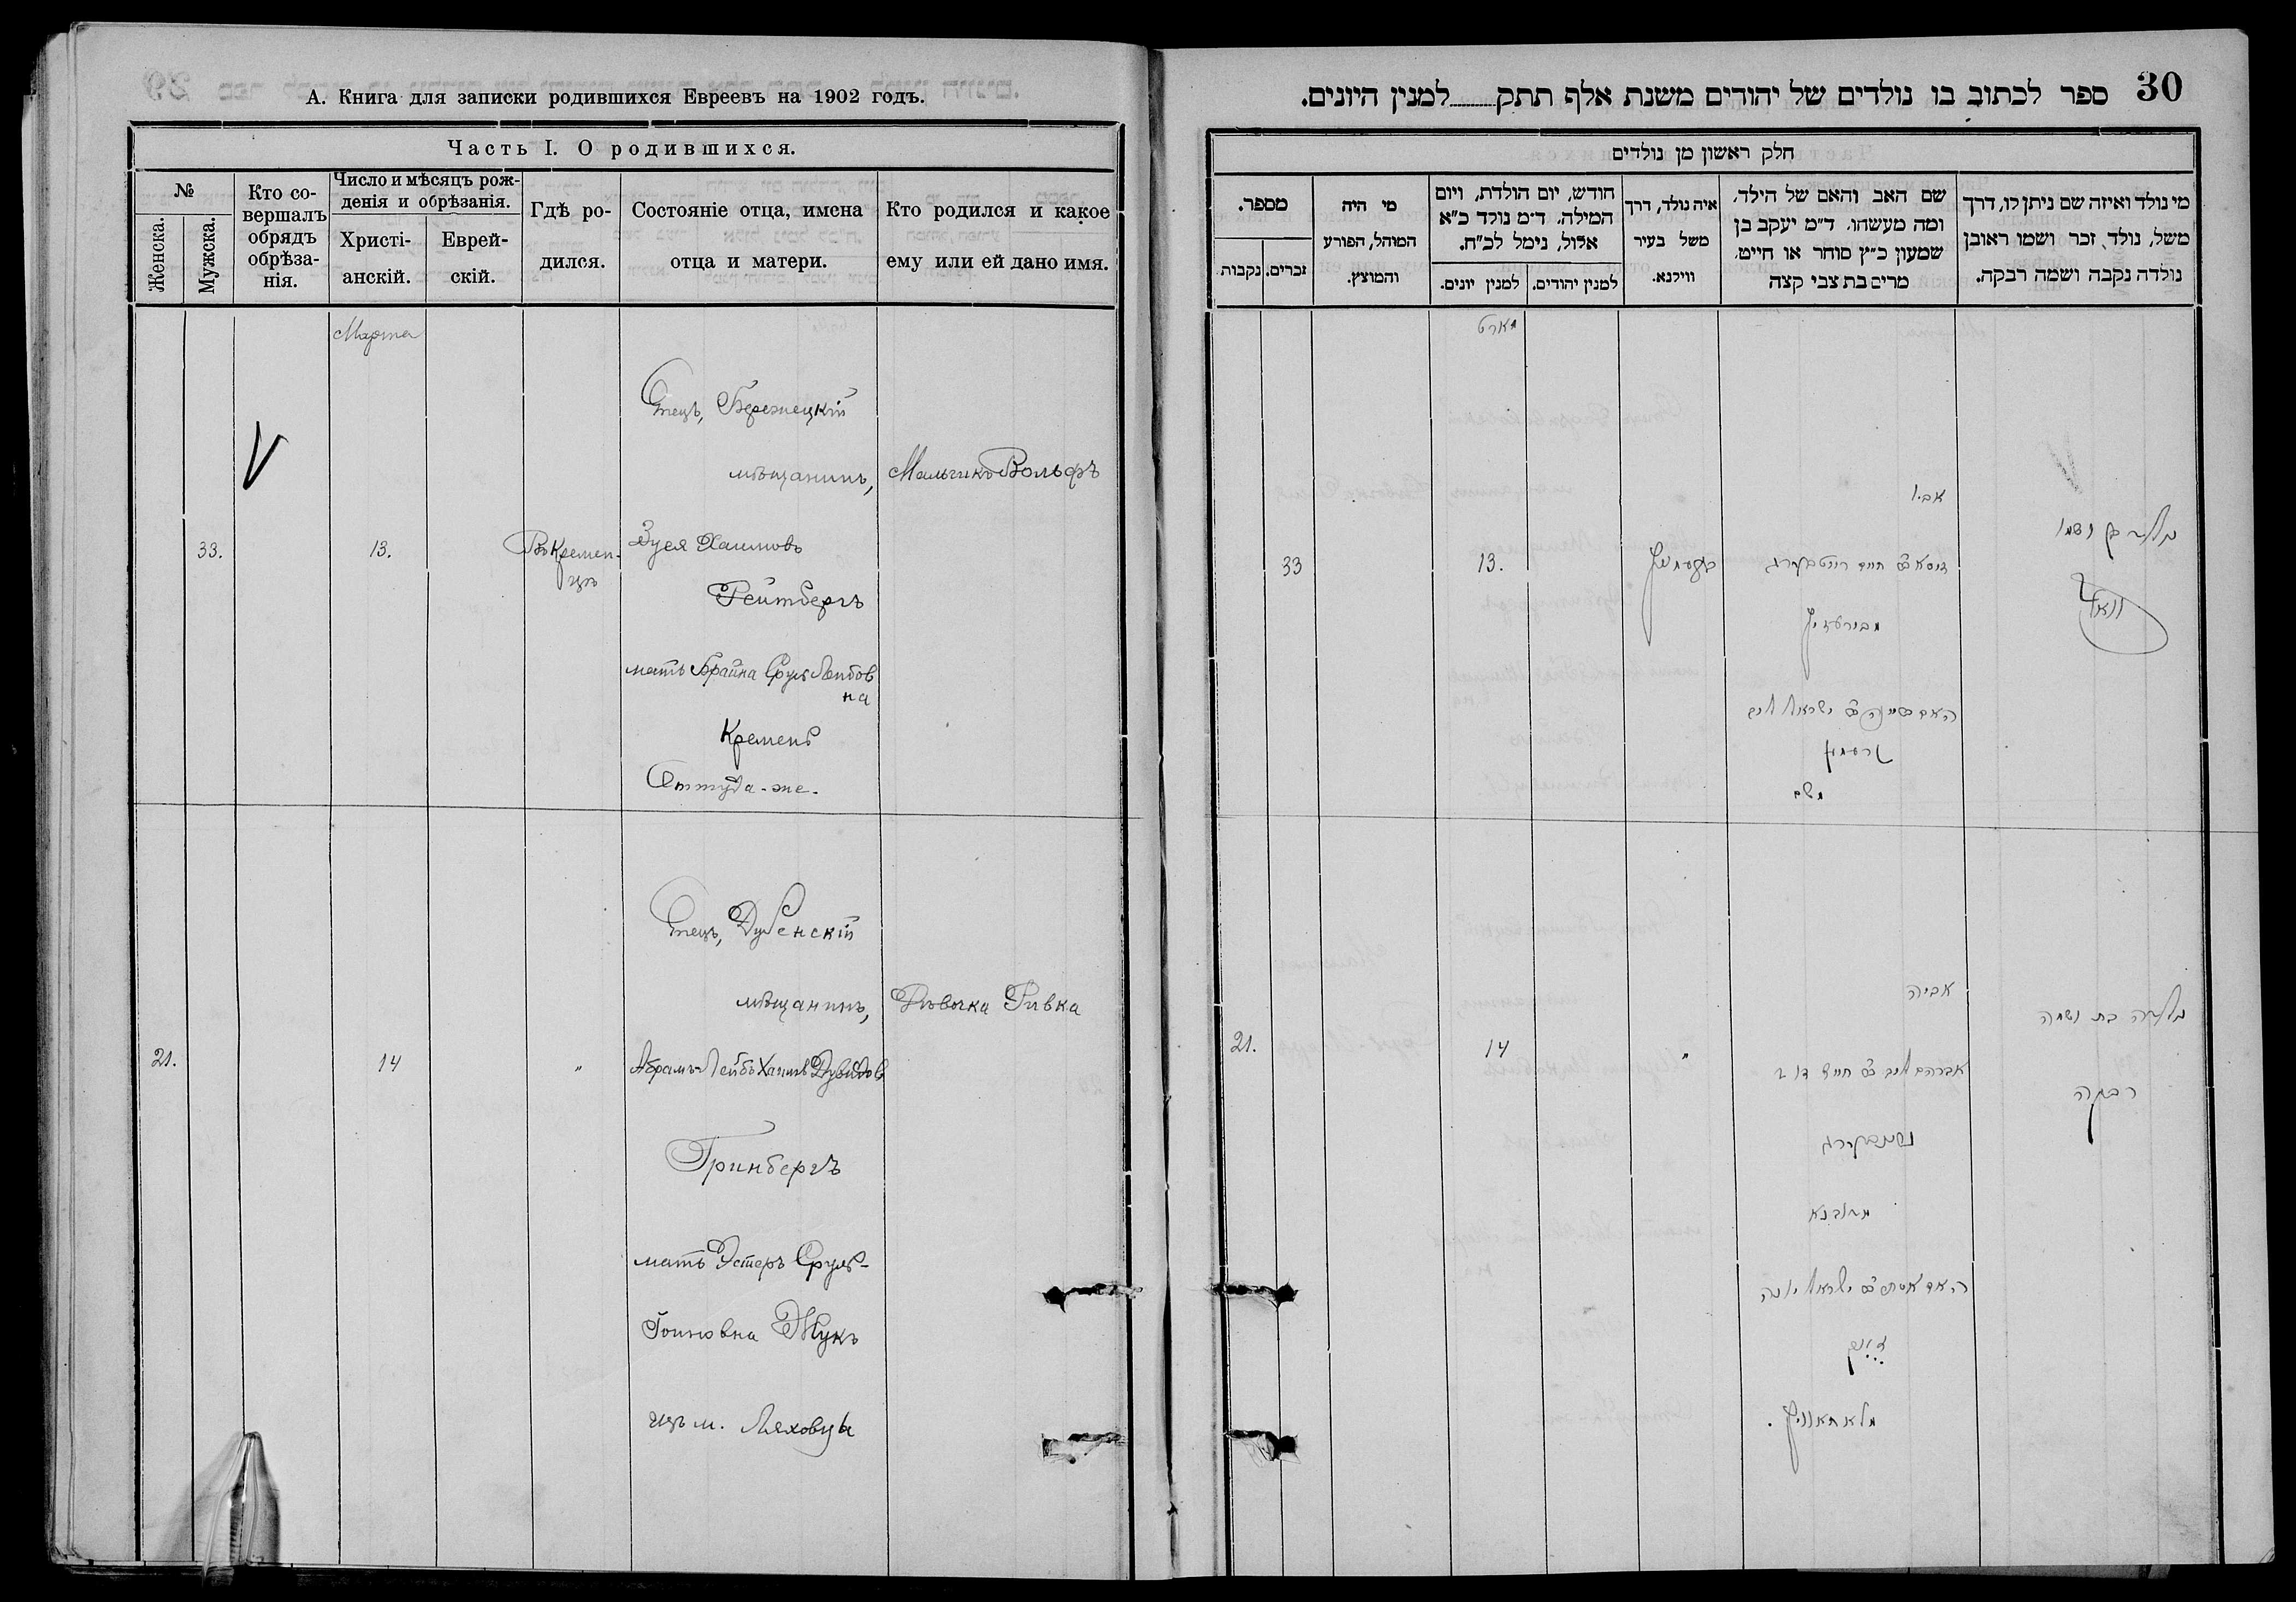 А. Книга для записки родившихся Евреевъ на 1902 годъ.
Часть I. О родившихся.
№
Женска.
Мужска.
Кто со-
вершалъ
обрядъ
обрѣза-
нія.
Число и мѣсяцъ рож-
денія и обрѣзанія.
Христі-
анскій.
Еврей-
скій.
Гдѣ ро-
дился.
Состояніе отца, имена
отца и матери.
Кто родился и какое
ему или ей дано имя.
Марта
33.
13.
Въ Кремен-
цѣ
Отецъ, Бережецкій
мѣщанинъ,
Зуся Хаимовъ
Рейтбергъ
мать Брайна Сруль Лейбов
на
Кремень
Оттуда-же.
Мальчикъ Вольфъ
21.
14
"
Отецъ, Дубенскій
мѣщанинъ,
Абрамъ-Лейбъ Хаимъ Дувидов
Гринбергъ
мать Эстеръ Сруль-
Іоиновна Жукъ
изъ м. Ляховцы
Дѣвочка Ривка
30
ספר לכתוב בו נולדים של יהודים משנת אלף תתק למנין היונים.
חלק ראשון מן נולדים
מספר.
זכרים.
נקבות
מי היה
המוהל, הפורע
והמוצץ.
חודש, יום הולדת, ויום
המילה. ד״מ נולד כ״א
אלול, נימל לכ״ח.
למנין יונים.
למנין יהודים.
איה נולד, דרך
משל בעיר
ווילנא.
שם האב והאם של הילד,
ומה מעשהו. ד״מ יעקב בן
שמעון כ״ץ סוחר או חייט,
מרים בת צבי קצה
מי נולד ואיזה שם ניתן לו, דרך
משל, נולד, זכר ושמו ראובן
נולדה נקבה ושמה רבקה.
מארט
33
13.
אביו
משם
21.
14
"
אביה
נולדה בת ושמה
רבקה